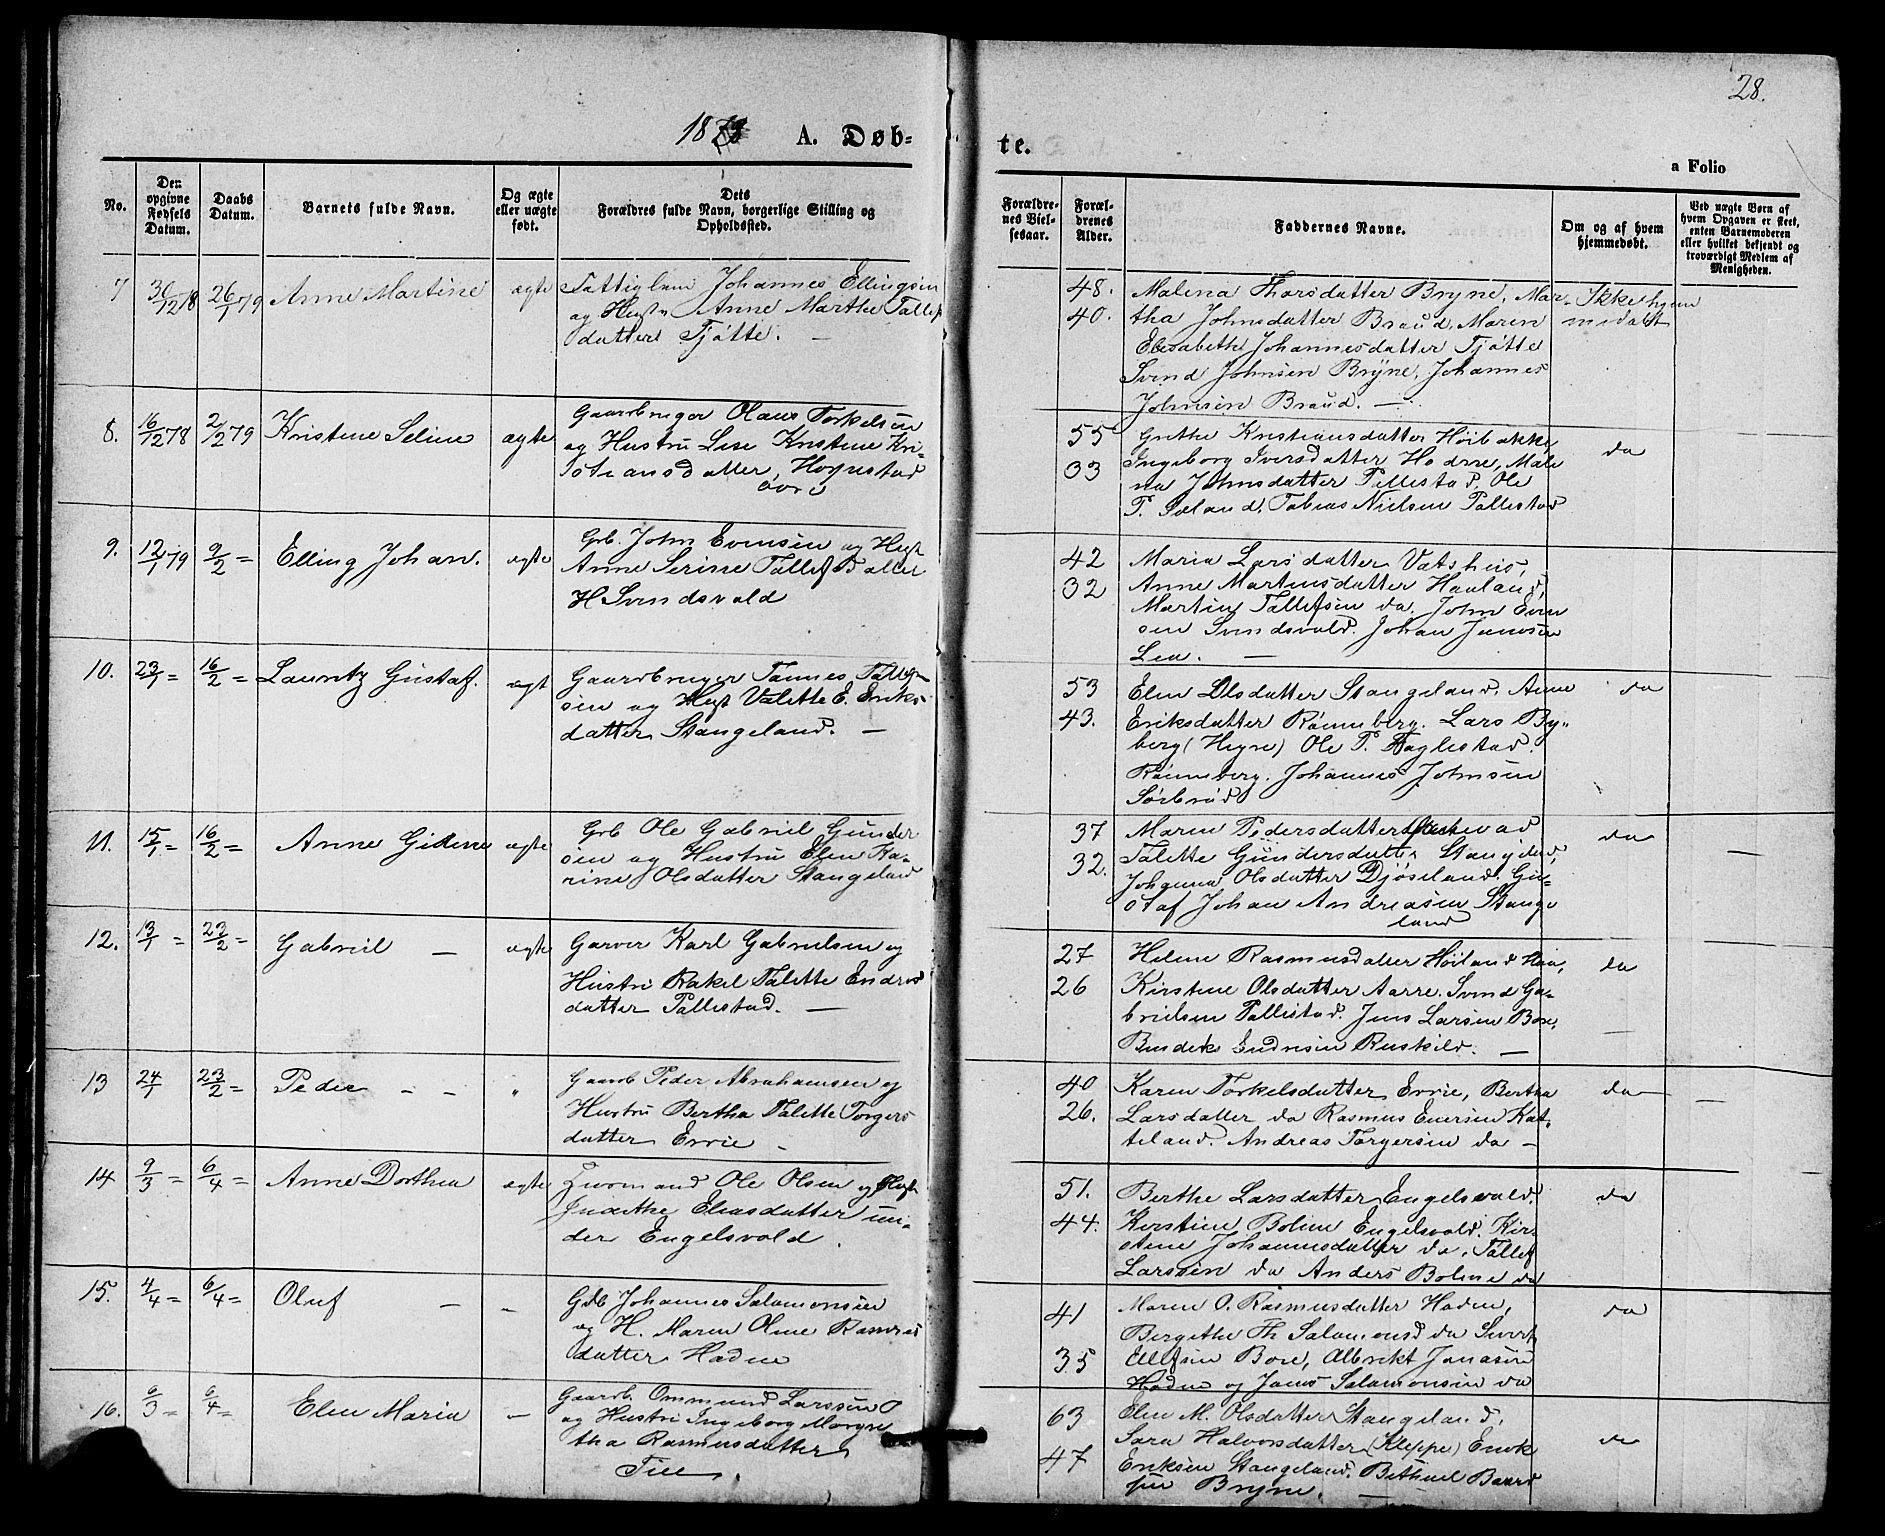 28.
18 A. Døb-
te.
a Folio
No.
Den opgivne Fødsels Datum.
Daabs Datum.
Barnets fulde Navn.
Og ægte eller uægte født.
Dets Forældres fulde Navn, borgerlige Stilling og Opholdssted.
Forældrenes Vielsesaar.
Forældrenes Alder.
Faddernes Navne.
Om og af hvem hjemmedøbt.
Ved uægte Børn af hvem Opgaven er skeet, enten Barnemoderen eller hvilket bekjendt og troværdigt Medlem af Menigheden.
7 30/12 78 26/1 79 Anne Martine ægte Johannes Ellingsen
og Hust. Anne Marthe Tallef
datter Tjøtte. —
48. Malena Thorsdatter Bryne, Mar- Ikke hjem
40. tha Johnsdatter Braud, Maren medøbt
Elisabeth Johannesdatter Tjøtte
Svend Johnsen Bryne, Johannes
Johnsen Braud. —
8. 16/12 78 2/2 79 Kristene Seline ægte Gaardbruger Olaus Torkelsen
og Hustru Lise Kristene Kri-
stiansdatter, Hognestad
øvre
55 Grethe Kristiansdatter Høibakke, do
33 Ingeborg Iversdatter Hodne, Male
na Johnsdatter Tallestad, Ole
T. Søland, Tobias Nielsen Tallestad
9. 12/1 79 9/2 = Elling Johan. ægte Grb. John Evensen og Hust
Anne Serine Tallefsdatter
H Svendsvold
42 Maria Larsdatter Vatshus,
32 Anne Martinsdatter Haaland,
Martin Tallefsen do. John Even
sen Svendsvold. Johan Jonasen
Lea. —
10. 23/1 = 16/2 = Lauritz Gustaf. ægt Gaardbruger Tønnes Tallef-
sen og Hust Valette E. Eriks-
datter Stangeland. —
53 Elen Olsdatter Stangeland. Anne do
43. Eriksdatter Rønneberg. Lars By-
berg (Hegre) Ole T.
Rønneberg. Johannes Johnsen
Sørbrød
11. 15/1 = 16/2 = Anne Gidene ægte Grb Ole Gabriel Gunder
sen og Hustru Elen Ka-
rine Olsdatter Stangeland
37 Maren Pedersdatter do —
32. Talette Gundersdatter Stangeland,
Johanna Olsdatter Djøseland, Gu-
staf Johan Andreasen Stange
land
12. 13/1 = 23/2 = Gabriel — ægte Garver Karl Gabrielsen og
Hustru Rakel Talette Endres
datter Tallestad. —
27 Helene Rasmusdatter Høiland Haa, do
26 Kirstene Olsdatter Aarre. Svend Ga-
brielsen Tallestad. Jens Larsen Bore, —
Bendik Endresen Ruskild. —
13 24/1 23/2 = Peder — — " Gaardb Peder Abrahamsen og
Hustru Bertha Talette Torgers
datter Ervie —
40 Karen Torkelsdatter Ervie, Bertha do — —
26. Larsdatter do Rasmus Enersen Kat-
teland. Andreas Torgersen do —
14 9/3 = 6/4 = Anne Dorthea ægte Huusmand Ole Olsen og Hust
Judithe Eliasdatter un-
der Engelsvold.
51. Berthe Larsdatter Engelsvold. do
44. Kirstine Boline Engelsvold. Kir-
stine Johannesdatter do, Tallef
Larssen do Anders Boline do
15. 4/4 = 6/4 = Oluf — — Gdb Johannes Salamonsen
og H. Maren Oline Rasmus
datter Hodne
41 Maren O. Rasmusdatter Hodne, do
Bergithe Th Salamonsd do Sivert
35 Ellefsen Bore, Albrekt Jonasen
Hodne og Jonas Salamonsen do
16. 6/3 = 6/4 = Elen Maria — Gaardb. Ommund Larssen
og Hustru Ingeborg Margre
tha Rasmusdatter
Tue.
63 Elen M. Olsdatter Stangeland,
Sara Halvorsdatter (Kleppe) Enok do
47 Eriksen Stangeland. Bethuel Baard
sen Bryne. —